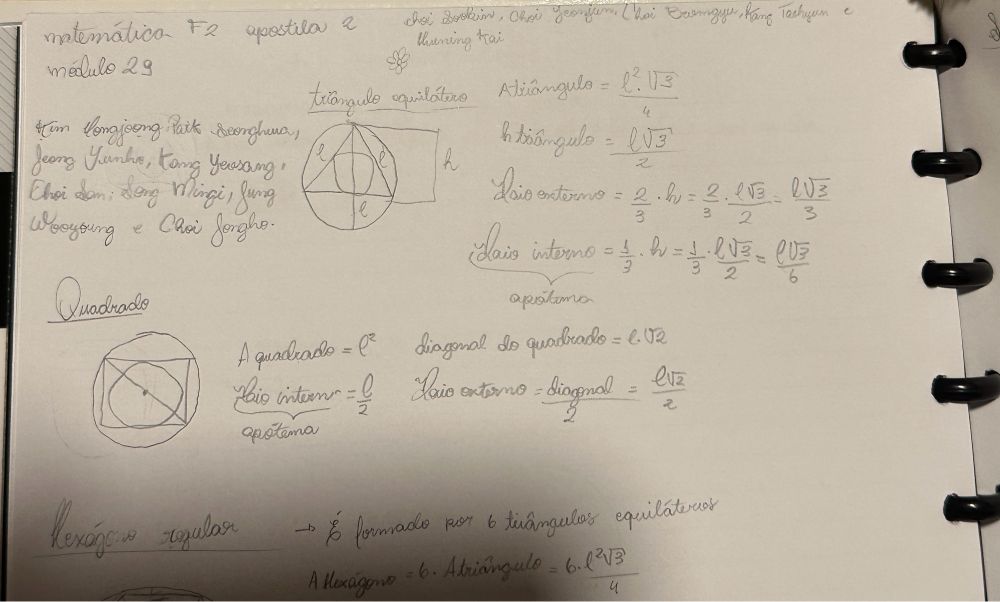 matemática F2 apostila 2
Choi Soobin, Choi Yeonjun, Choi Beomgyu, Kang Taehyun e
Huening Kai
módulo 29
triângulo equilátero
Kim Hongjoong Park Seonghwa,
Jeong Yunho, Kang Yeosang,
Choi San, Song Mingi, Jung
Wooyoung e Choi Jongho.
l l h
l
A triângulo = l².√3/4
h triângulo = l√3/2
Raio externo = 2/3 . h = 2/3 . l√3/2 = l√3/3
Raio interno = 1/3 . h = 1/3 . l√3/2 = l√3/6
apótema
Quadrado
A quadrado = l² diagonal do quadrado = l.√2
Raio intern = l/2 Raio externo = diagonal/2 = l√2/2
apótema
Hexágono regular → É formado por 6 triângulos equiláteros
A Hexagono = 6. A triângulo = 6. l²√3/4